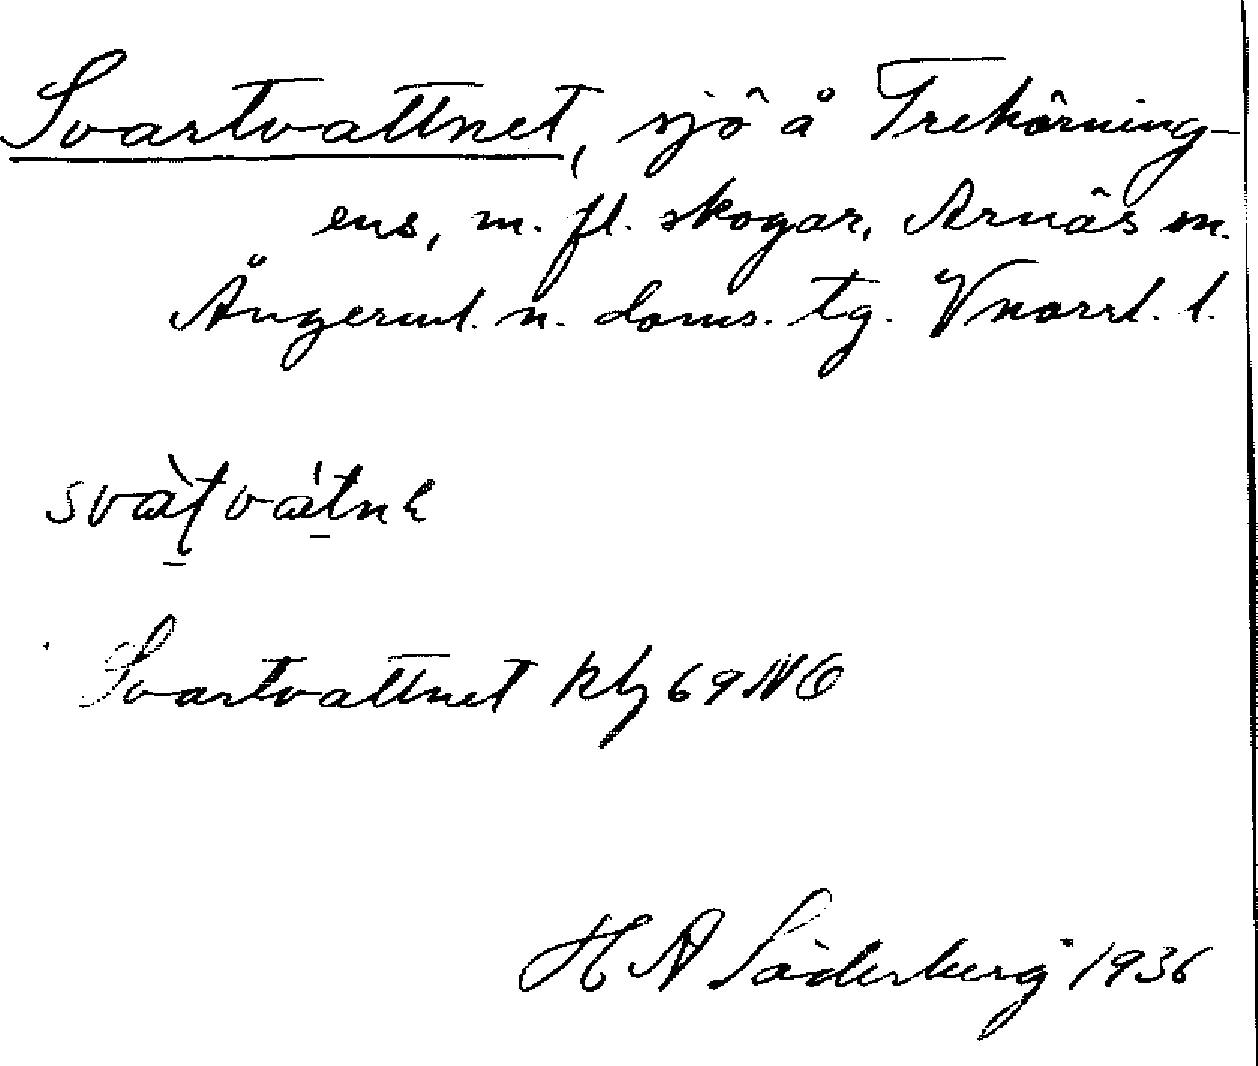 Svartvattnet, sjö å Trehörning-
ens, m. fl. skogar, Arnäs sn.
Ångerml. n. doms. tg. Vnorrl. l.
Svartvattnet kbl 69 NO
H A Söderberg 1936